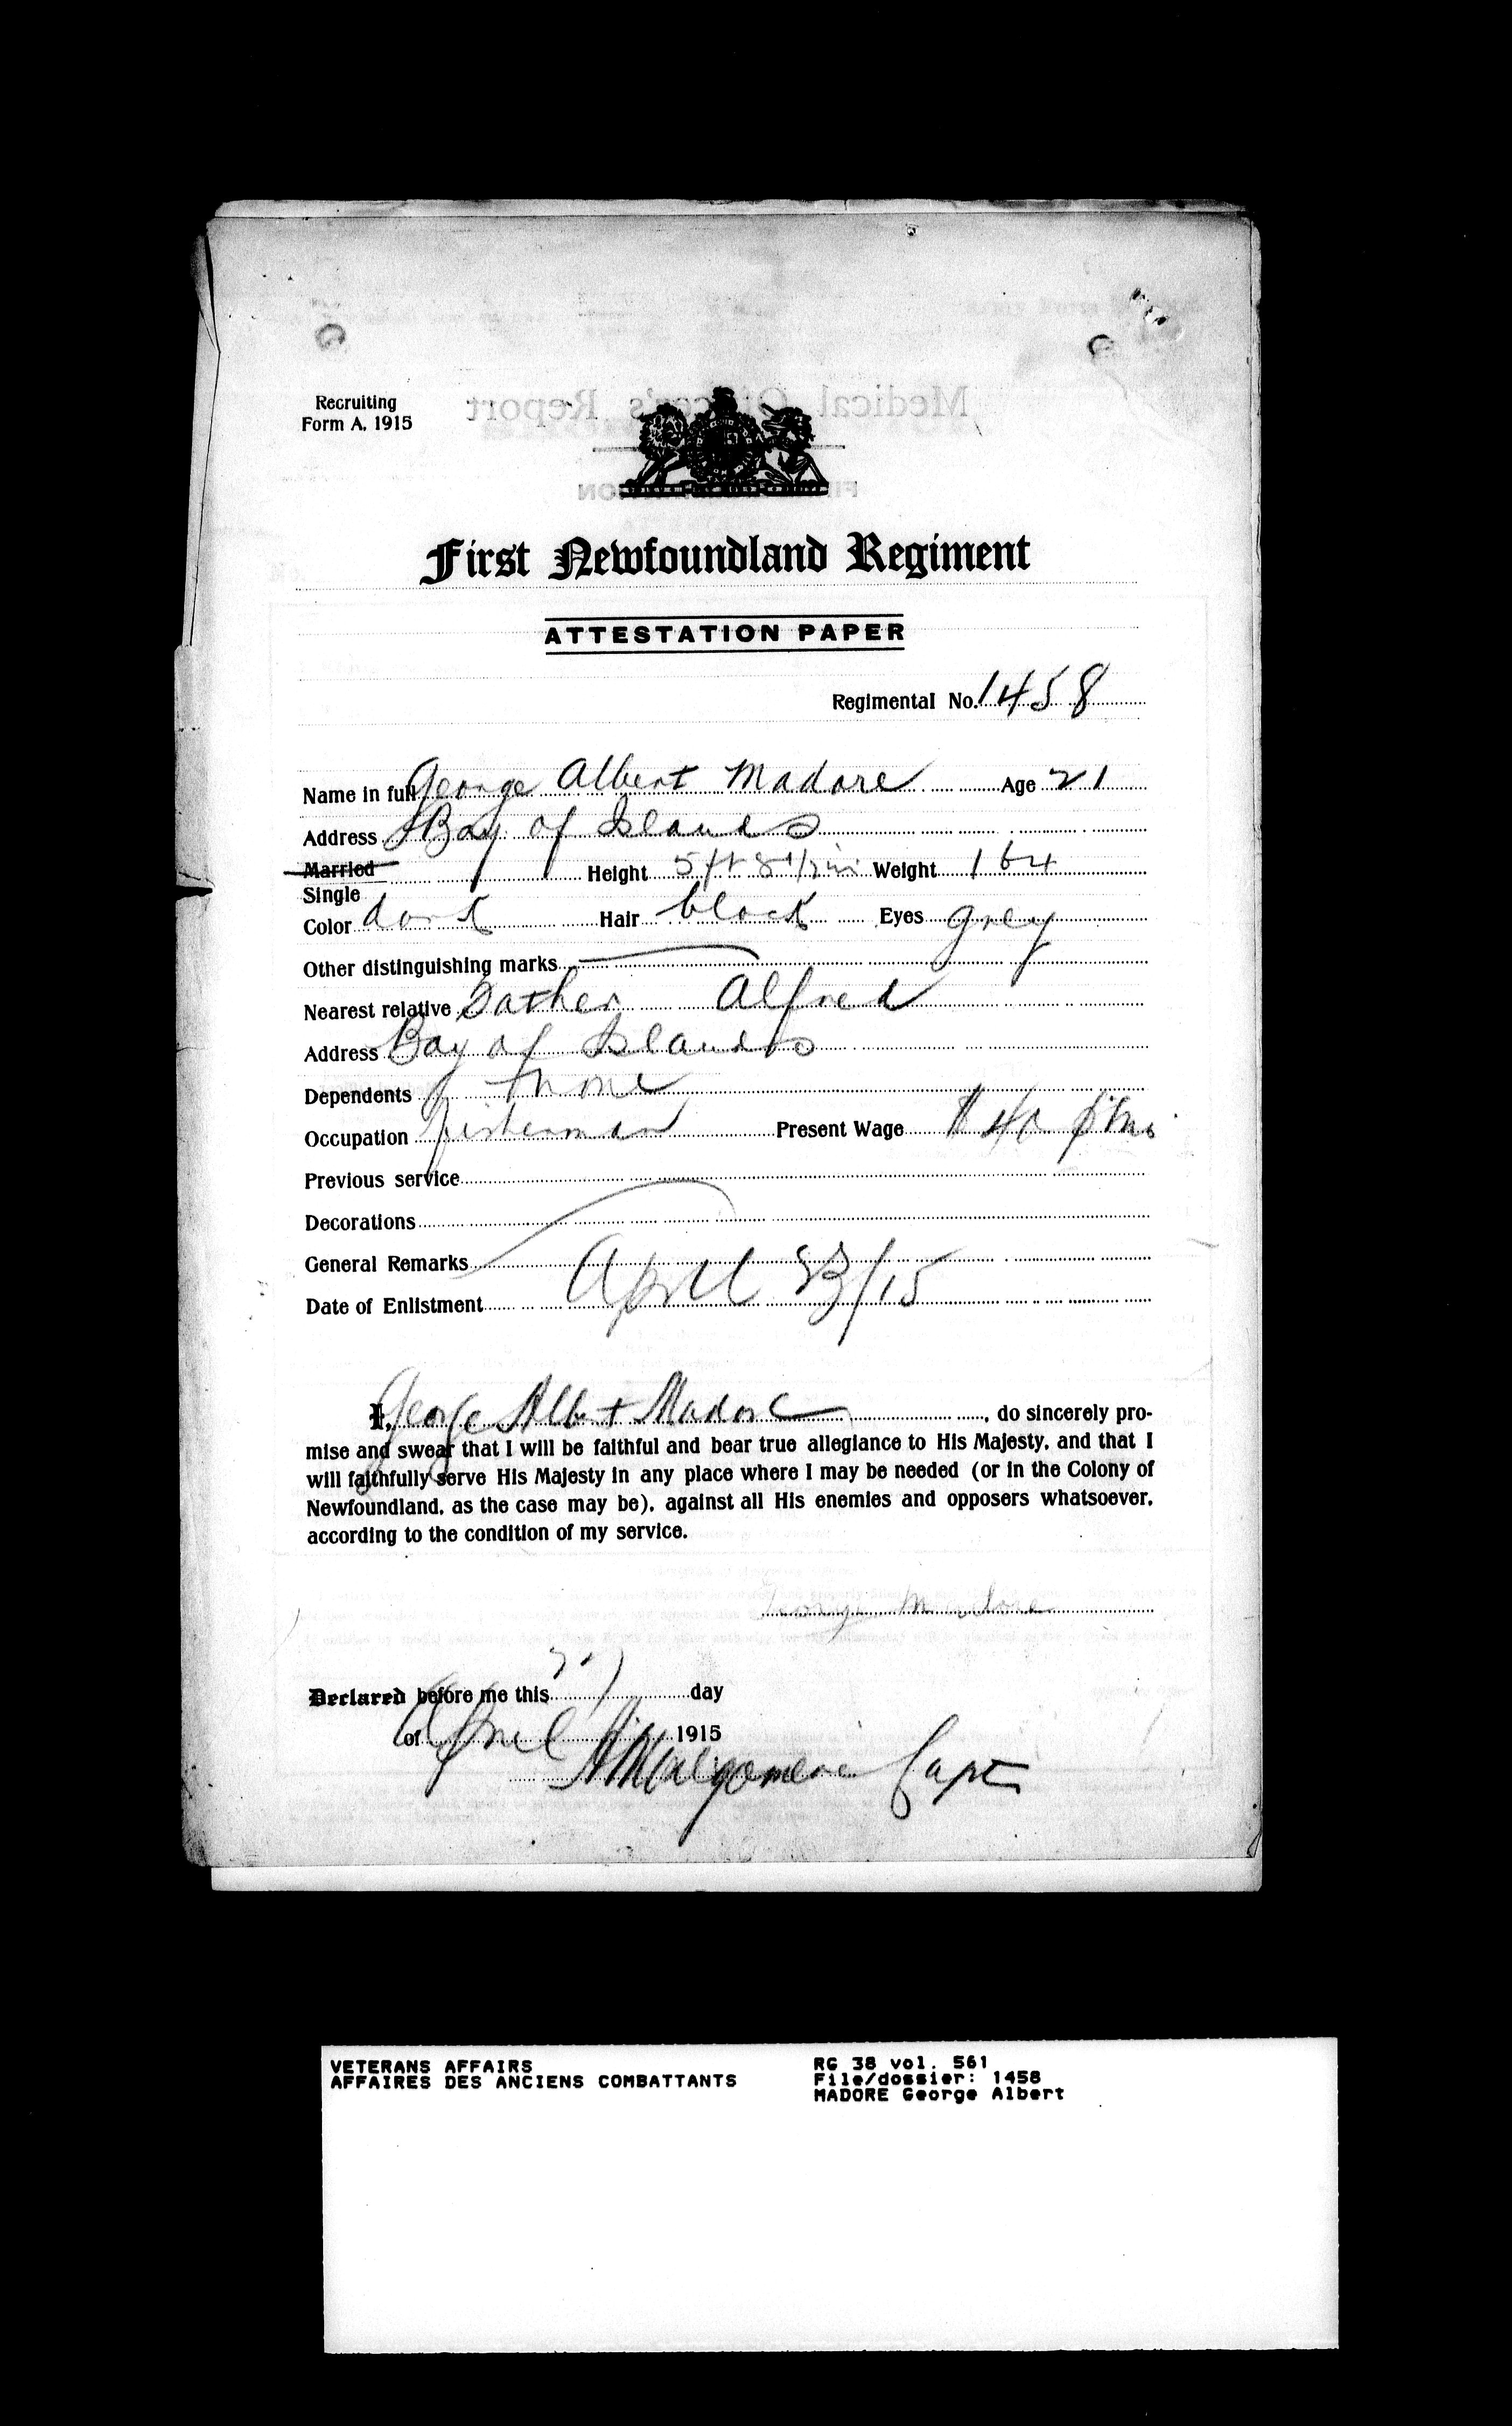 Recruiting
Form A. 1915
Medical Officer's Report
First Newfoundland Regiment
ATTESTATION PAPER
Regimental No. 1458
Name in full George Albert Madore Age 21
Address Bay of Islands
Married Height 5 ft 8 1/2 in Weight 164
Single
Color dark Hair black Eyes grey
Other distinguishing marks
Nearest relative Father Alfred
Address Bay of Islands
Dependents none
Occupation fisherman Present Wage $40 p mo
Previous service
Decorations
General Remarks
Date of Enlistment April 23/15
I, George Albert Madore, do sincerely pro-
mise and swear that I will be faithful and bear true allegiance to His Majesty, and that I
will faithfully serve His Majesty in any place where I may be needed (or in the Colony of
Newfoundland, as the case may be), against all His enemies and opposers whatsoever,
according to the condition of my service.
George Madore
Declared before me this day
of April 1915
Montgomerie Capt
VETERANS AFFAIRS
AFFAIRES DES ANCIENS COMBATTANTS
RG 38 vol. 561
File/dossier: 1458
MADORE George Albert